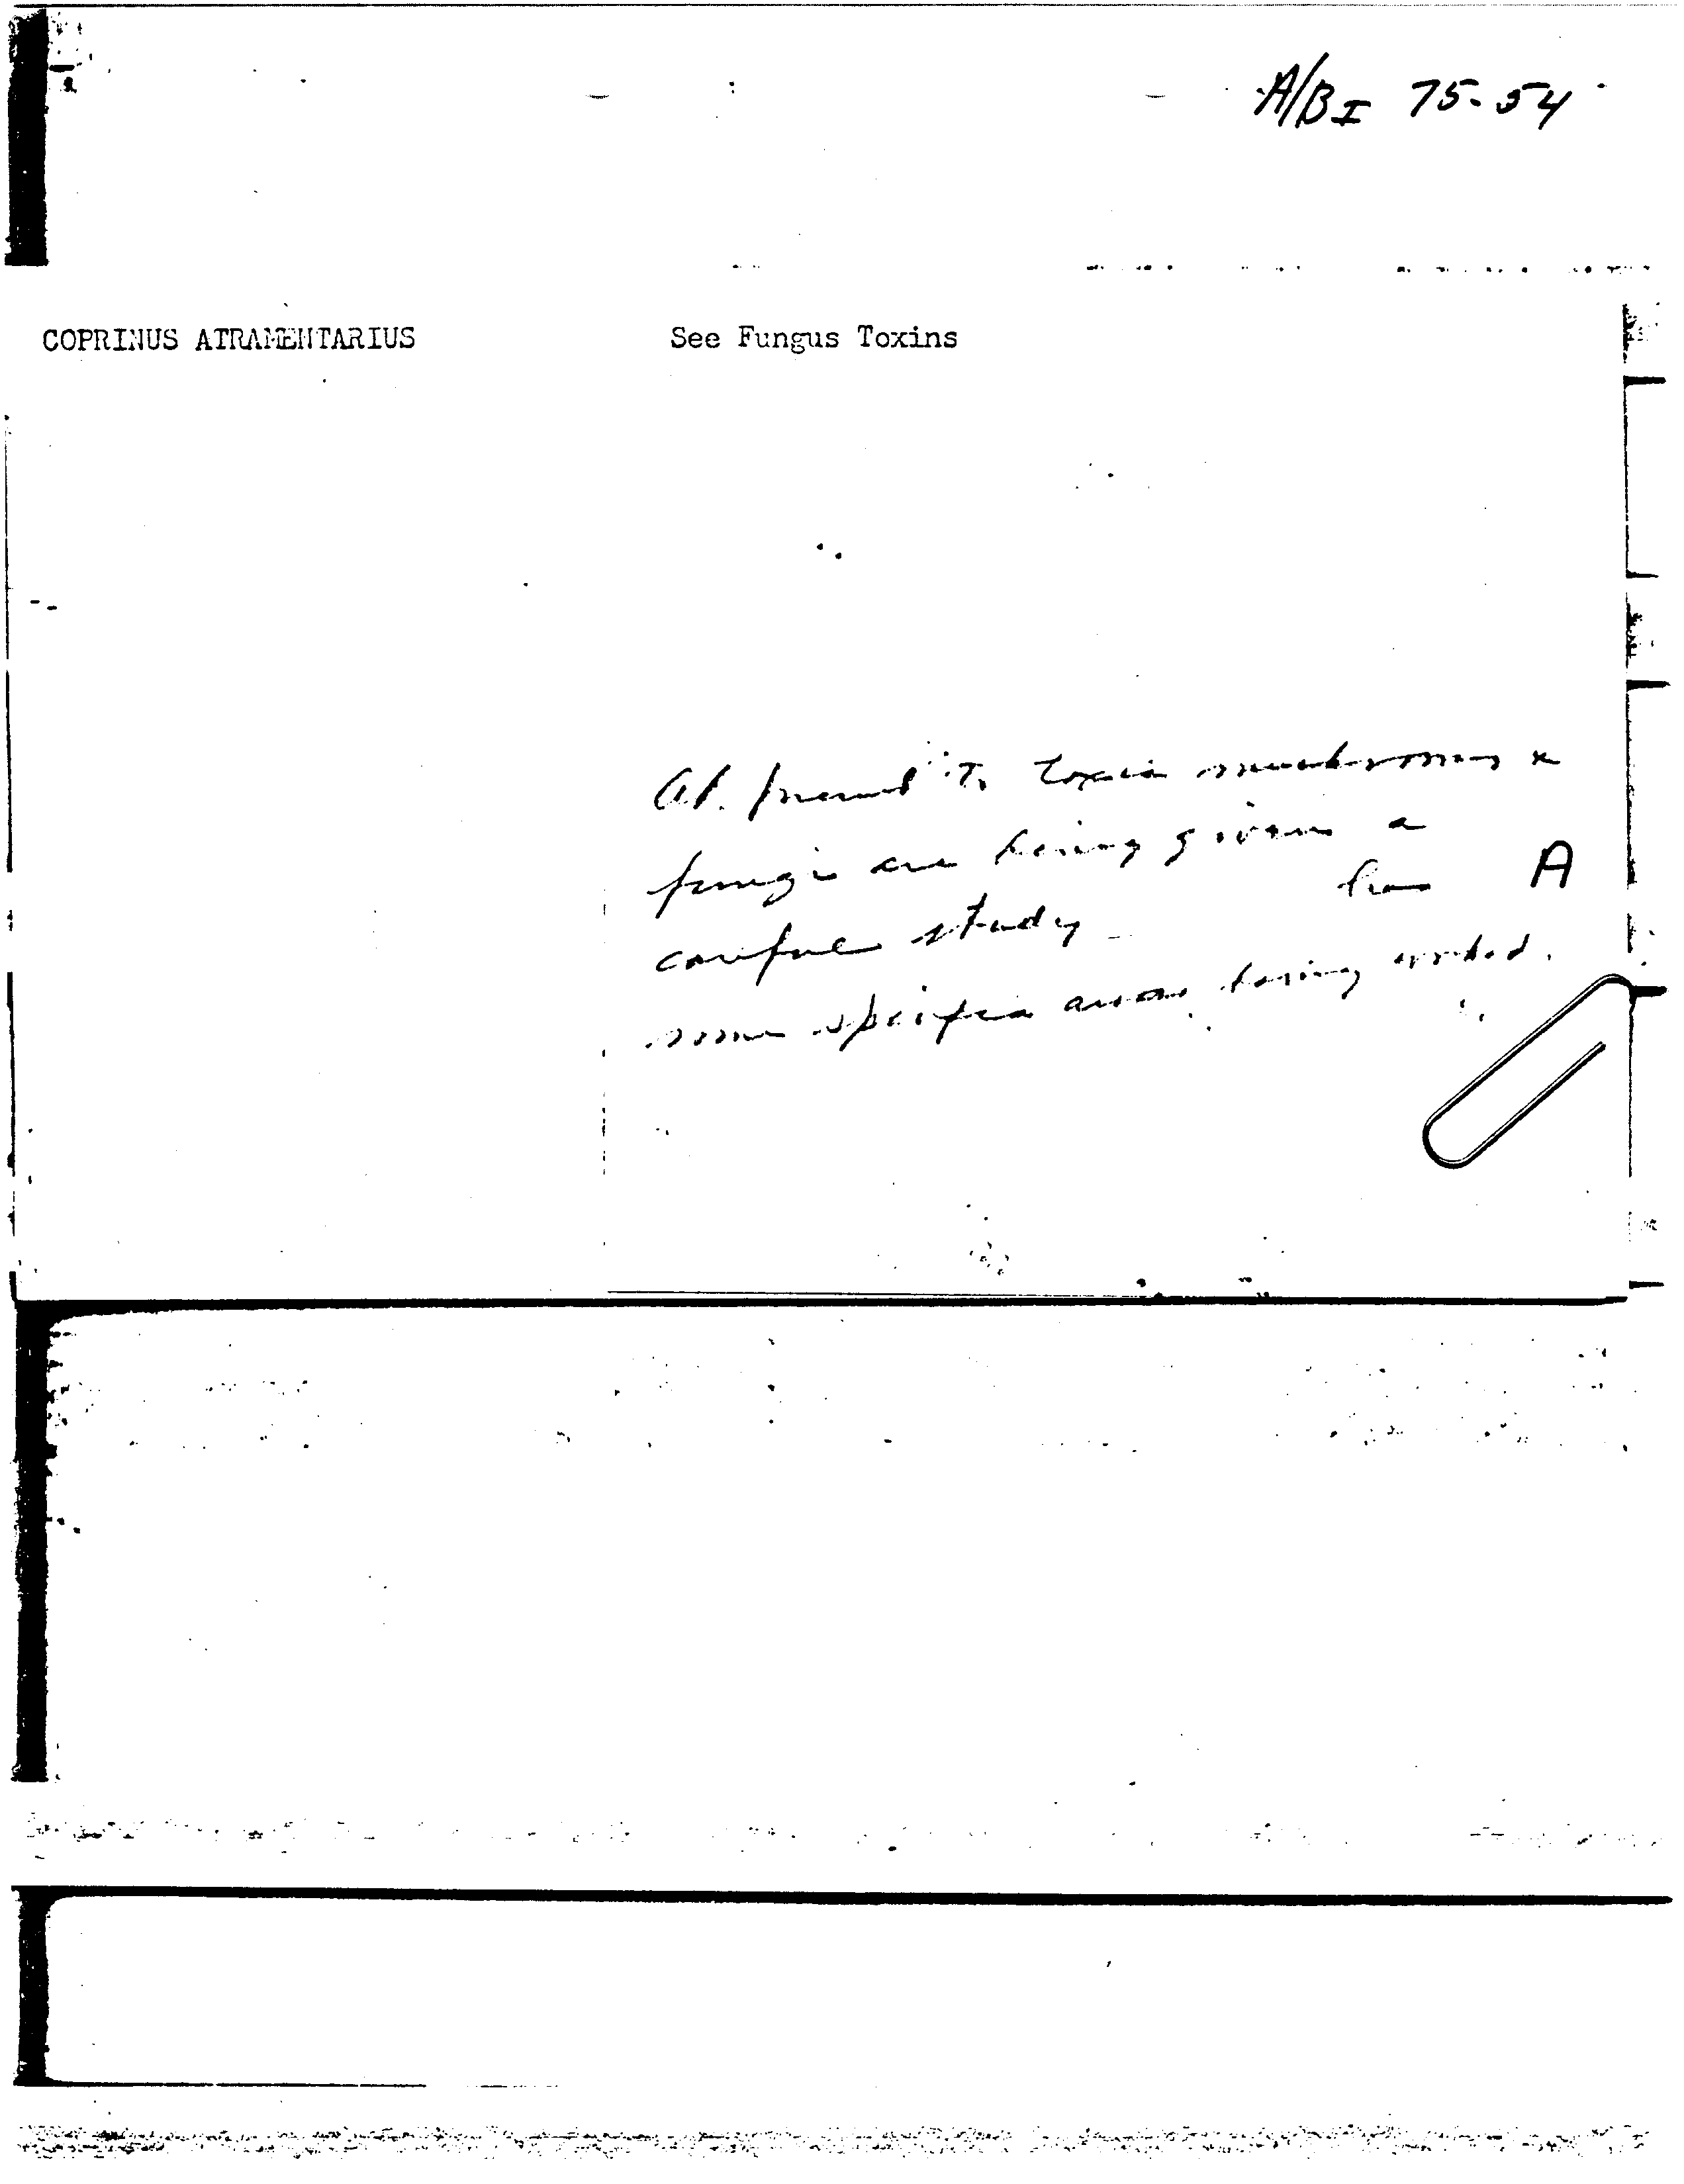 A/B I 75-54
COPRINUS ATRAMENTARIUS See Fungus Toxins
At present toxic mushrooms &
fungi are being given a
careful study
A
some specific areas being worked.